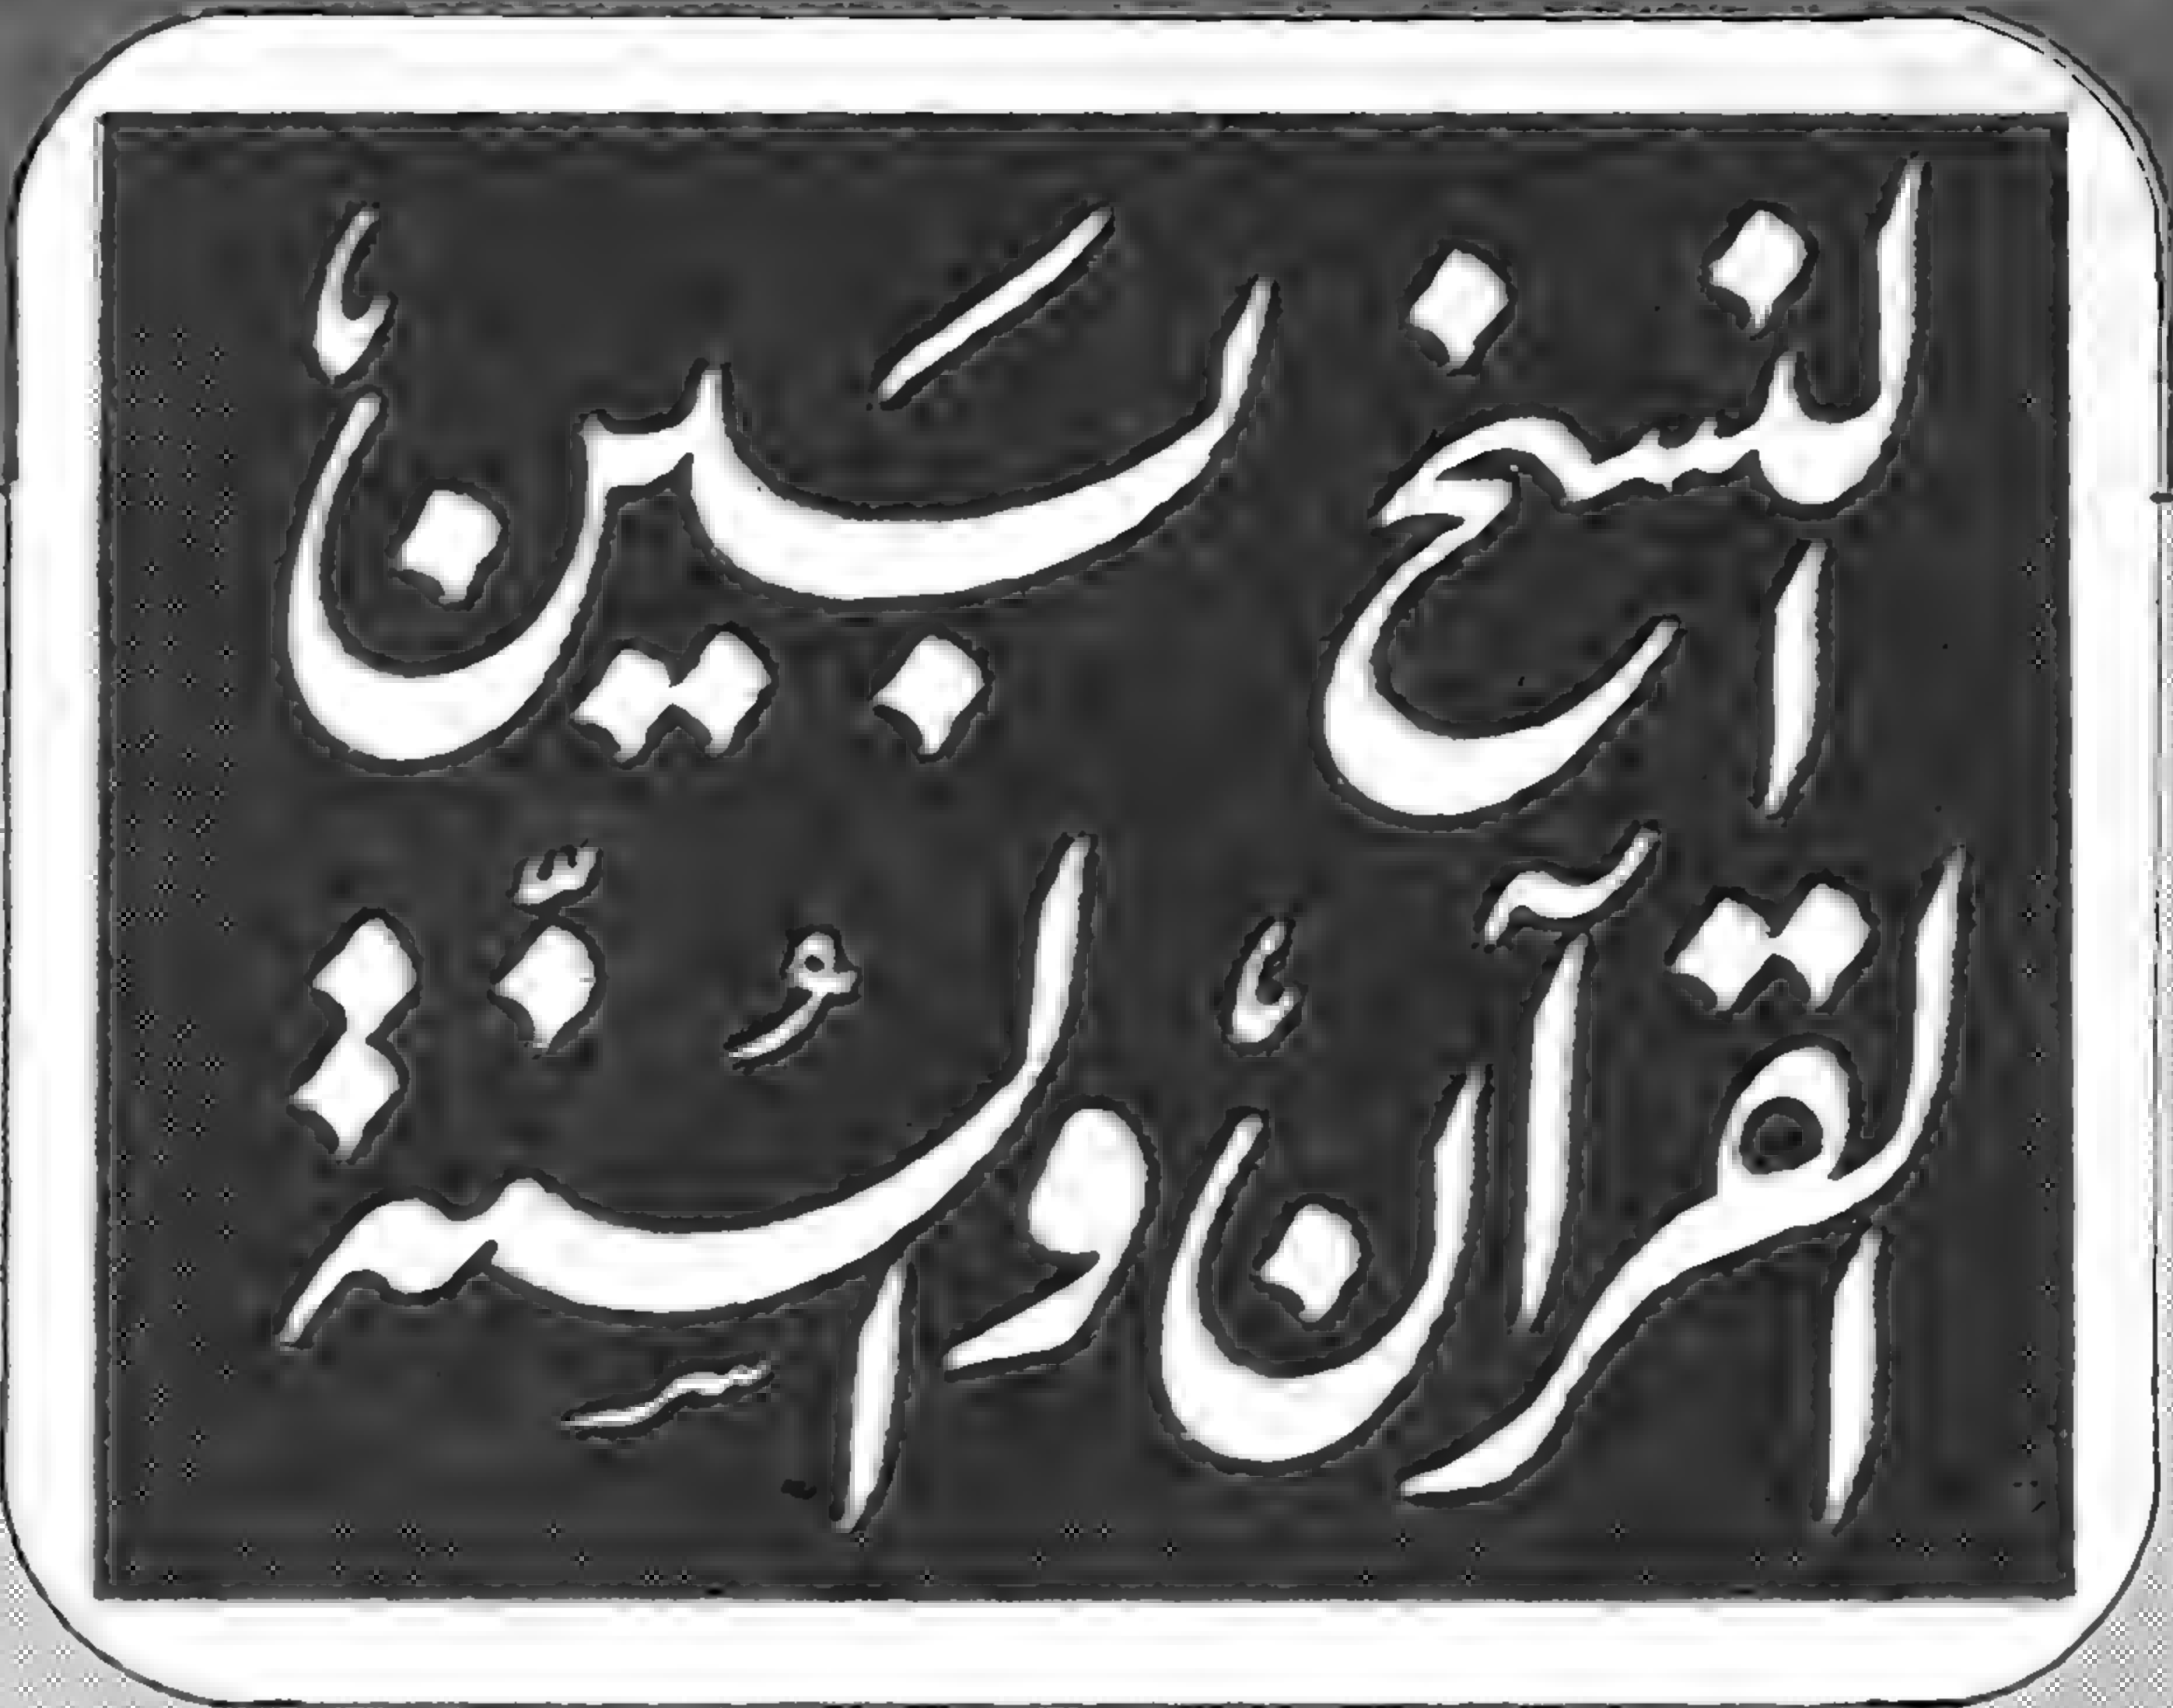 النسخ بَين
القرآن والسُّنّة